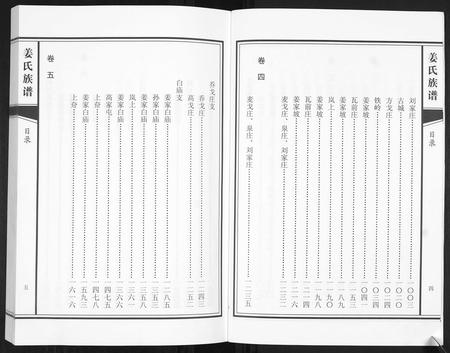 姜氏族谱
目录
刘家庄……〇〇三
古城……〇二〇
方戈庄……〇二四
铁岭……〇三四
姜家坡……〇四一
瓦前庄
姜家坡
岚上……一九〇
姜家坡……一九八
瓦前庄……二一四
姜家坡
麦戈庄、泉庄、刘家庄……二三二
卷四
麦戈庄、泉庄、刘家庄……二三五
四
乔戈庄支
乔戈庄……二四三
高戈庄……二五一
白庙支
姜家白庙……二八五
孙家白庙……三五三
姜家白庙……三五八
岚上……三六六
姜家白庙……三七六
高家屯……四七五
上夼……四七八
姜家白庙……五九三
上夼……六一六
卷五
姜氏族谱
目录
五